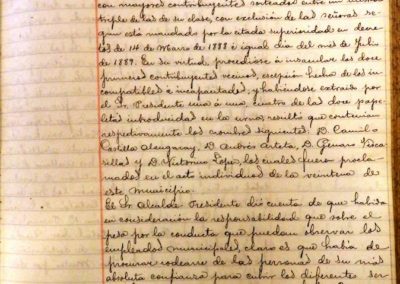 con mayores contribuyentes sorteados entre un número
triple de las de su clase, con exclusión de las señoras se-
gún está mandado por la citada superioridad en decre-
tos de 14 de Marzo de 1888 é igual dia del mes de Julio
de 1889. En su virtud, procedióse á insacular los doce
primeros contribuyentes vecinos, escepción hecha de los in-
compatibles é incapacitados; y habiéndose extraido por
el Sr. Presidente una á una, cuatro de las doce pape-
letas introducidas en la urna, resultó que contenían
respectivamente los nombres siguientes: D. Camilo
Castilla D. Andrés Arteta, D. Genaro
y D. Victorino Lope, los cuales fueron procla-
mados en el acto individuos de la veintena de
este municipio.
El Sr. Alcalde Presidente dió cuenta de que habida
en consideración la responsabilidad que sobre él
pesa por la conducta que puedan observar los
empleados municipales, claro es que había de
procurar rodearse de las personas de su más
absoluta confianza para cubrir los diferentes ser